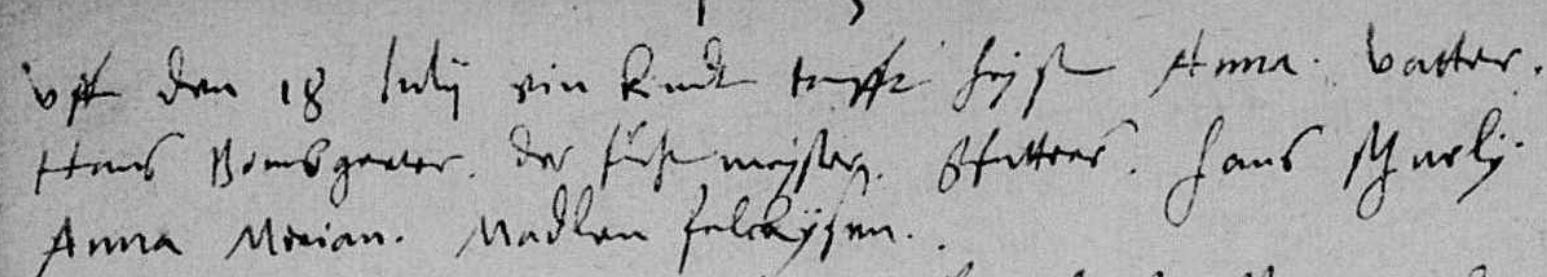 vff den 18 July ein Kindt taufft heyst Anna. Vatter.
Hans Bomsgarter. der meyster. Gfatter. Hans
Anna Merian. Madlen falckysen.